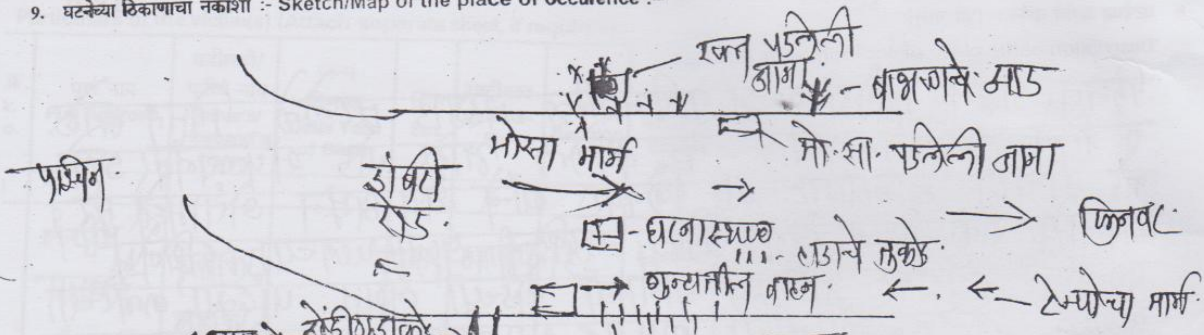 9. घटनेच्या ठिकाणाचा नकाशा :- Sketch/Map of the place of occurence :-
रक्त पडलेली
जागा
- बाभळीचे झाड
मोसा मार्ग
मो.सा. पडलेली जागा
पश्चिम
डांबरी
रोड.
- घटनास्थळ
तुकडे.
गुन्ह्यातील वाहन.
टेम्पोचा मार्ग